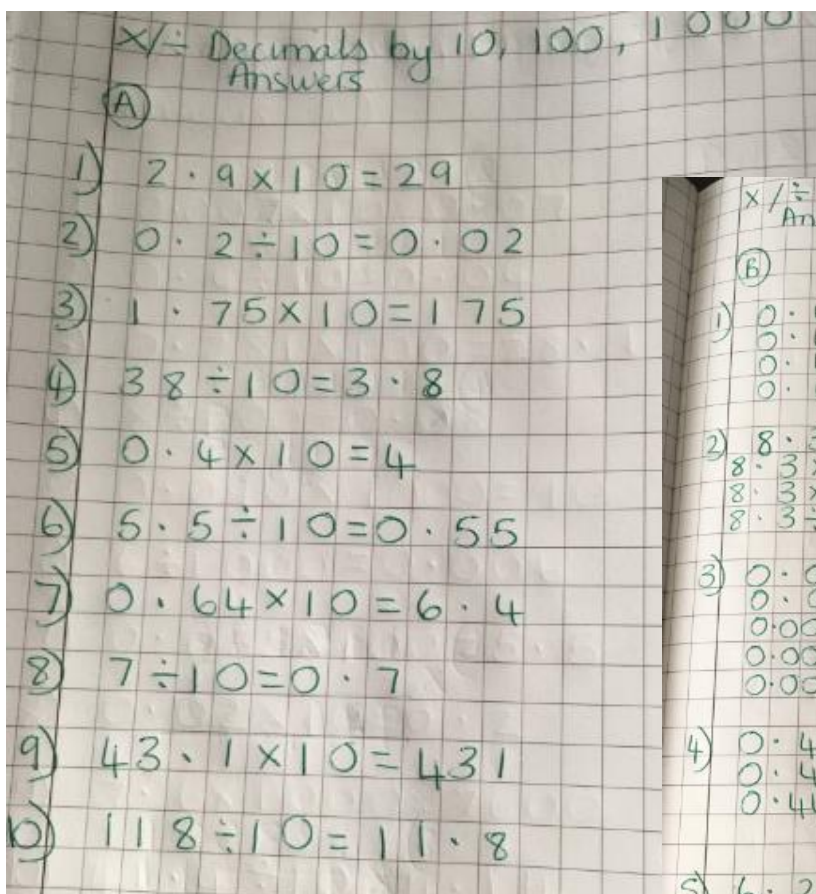 ×/÷ Decimals by 10, 100, 1000
Answers
A
1) 2·9×10=29
2) 0·2÷10=0·02
3) 1·75×10=175
4) 38÷10=3·8
5) 0·4×10=4
6) 5·5÷10=0·55
7) 0·64×10=6·4
8) 7÷10=0·7
9) 43·1×10=431
10) 118÷10=11·8
×/÷
An
B
1) 0·
0·
0·
0·
2) 8·
8·3×
8·3×
8·3÷
3) 0·0
0·0
0·00
0·00
0·00
4) 0·4
0·4
0·41
5) 6·2